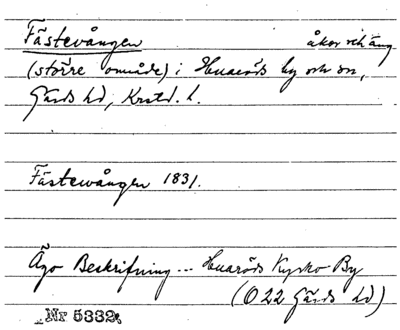 Fästevången åker och äng
(större område) i Huaröds by och sn,
Gärds hd, Krstd. l.
Fästewången 1831.
Ägo Beskrifning... Huaröds Kyrko By
(O 22 Gärds hd)
Nr 5332.